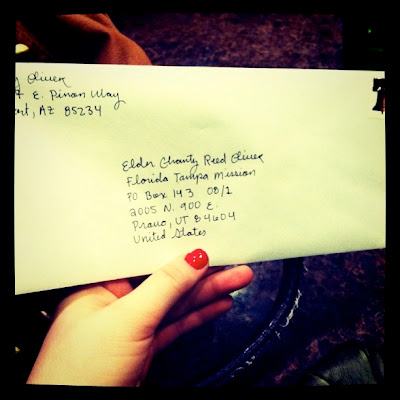 Oliver
E. Pinon Way
ert, AZ 85234
Elder Chanty Reed Oliver
Florida Tampa Mission
PO Box 143 08/2
2005 N. 900 E.
Provo, UT 84604
United States